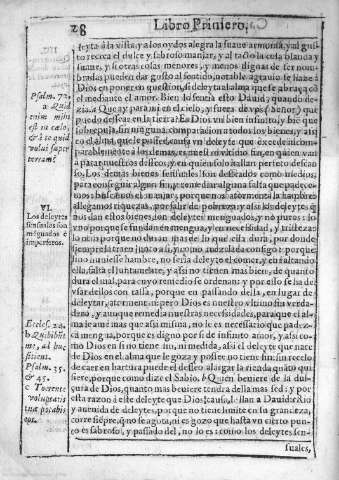 28
Libro Primero,
leyta â la vista, y a los oydos alegra la suaue armonia, y al gus
to recrea el dulce y sabroso manjar, y al tacto la cosa blanda y
suaue, y si otras cosas menores, y menos dignas de ser nom-
bradas pueden dar gusto al sentido, notable agrauio se haze â
Dios en poner en question, si deleyta al alma que se abraça cõ
el mediante el amor. Bien lo sentia esto Dauid, quando de-
zia: Que ay para mi en el cielo, y fuera de vos (Señor) que
puedo dessear en la tierra? Es Dios vn bien infinito, y biẽ que
sobrepuja sin ninguna comparacion a todos los bienes, y assi
el alma, que le possee, causa vn deleyte que excede
parablemente a los demas, es el vltimo fin, en quien van
â parar nuestros desseos, y en quien solo hallan perfeto descan
so. Los demas bienes sensuales son desseados como medios,
para conseguir algun fin, y remediar alguna falta que padece-
mos: buscamos el manjar, porque nos atormenta la hambre:
allegamos riquezas, por salir de pobreza, y assi los deleytes q̃
nos dan estos bienes, son deleytes menguados, y no puros: lo
vno porque se fundan en mengua, y en necessidad, y tristeza:
lo otro porque no duran mas de lo que ella dura, por donde
siempre la traen junto a si, y como anudada consigo: porque
sino vuiesse hambre, no seria deleyte el comer, y en faltando
ella, falta el juntamente, y assi no tienen mas bien, de quanto
dura el mal, para cuyo remedio se ordenan: y por esso se ha de
vsar dellos con tassa, porque en passando della, en lugar de
deleytar, atormentan: pero Dios es nuestro vltimo fin verda-
dero, y aunque remedia nuestras necessidades, para que el al-
ma le ame mas que assi misma, no le es necessario que padez-
ca mengua, porque es digno por si de infinito amor, y assi co-
mo Dios en si no tiene fin, ni medida, assi el deleyte que nace
de Dios en el alma que le goza y possee no tiene fin: sin recelo
de caer en hartura puede el desseo alargar la rienda quãto qui
siere, porque como dize el Sabio, Quien beuiere de la dul-
çura de Dios, quanto mas beuiere tendra della mas sed: y por
esta razon â este deleyte que Dios causa, le llama Dauid: Rio
y auenida de deleytes, porque no tiene limite en su grandeza,
corre siẽpre, q̃ no se agota, ni es gozo que hasta vn cierto pun-
to es sabroso, y passado del, no lo es: como los deleytes sen-
suales,
Psalm. 72.
a Quid
enim mihi
est in cælo,
& à te quid
volui super
terram?
VI.
Los deleytes
sensuales son
mẽguados e
imperfetos.
Eccles. 24.
b Qui bibũt
me, ad huc
sitient.
Psalm. 35.
& 45.
c Torrente
voluptatis
tuæ potabis
eos.